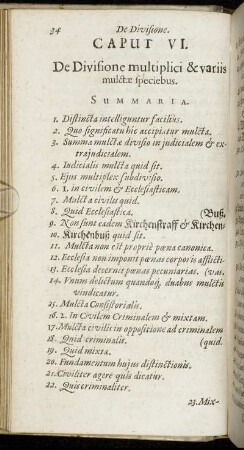 34 De Divisione.
CAPUT VI.
De Divisione multiplici & variis
mulctæ speciebus.
SUMMARIA.
1. Distincta intelliguntur facilius.
2. Quo significatu hic accipiatur mulcta.
3. Summa mulctæ devisio in judicialem & ex-
trajudicialem.
4. Iudicialis mulcta quid sit.
5. Ejus multiplex subdivisio.
6. 1. in civilem & Ecclesiasticam.
7. Mulcta civilis quid.
8. Quid Ecclesiastica. (Buß,
9. Non sunt eadem Kirchenstraff & Kirchen-
10. Kirchenbuß quid sit.
11. Mulcta non est propriè pœna canonica.
12. Ecclesia non imponit pœnas corporis afflicti-
13. Ecclesia decernit pœnas pecuniarias. (vas.
14. Vnum delictum quandoq; duabus mulctis
vindicatur.
15. Mulcta Consistorialis.
16. 2. In Civilem Criminalem & mixtam.
17. Mulcta civilis in oppositione ad criminalem
18. Quid criminalis. (quid.
19. Quid mixta.
20. Fundamentum hujus distinctionis.
21. Civiliter agere quis dicatur.
22. Quis criminaliter.
23. Mix-